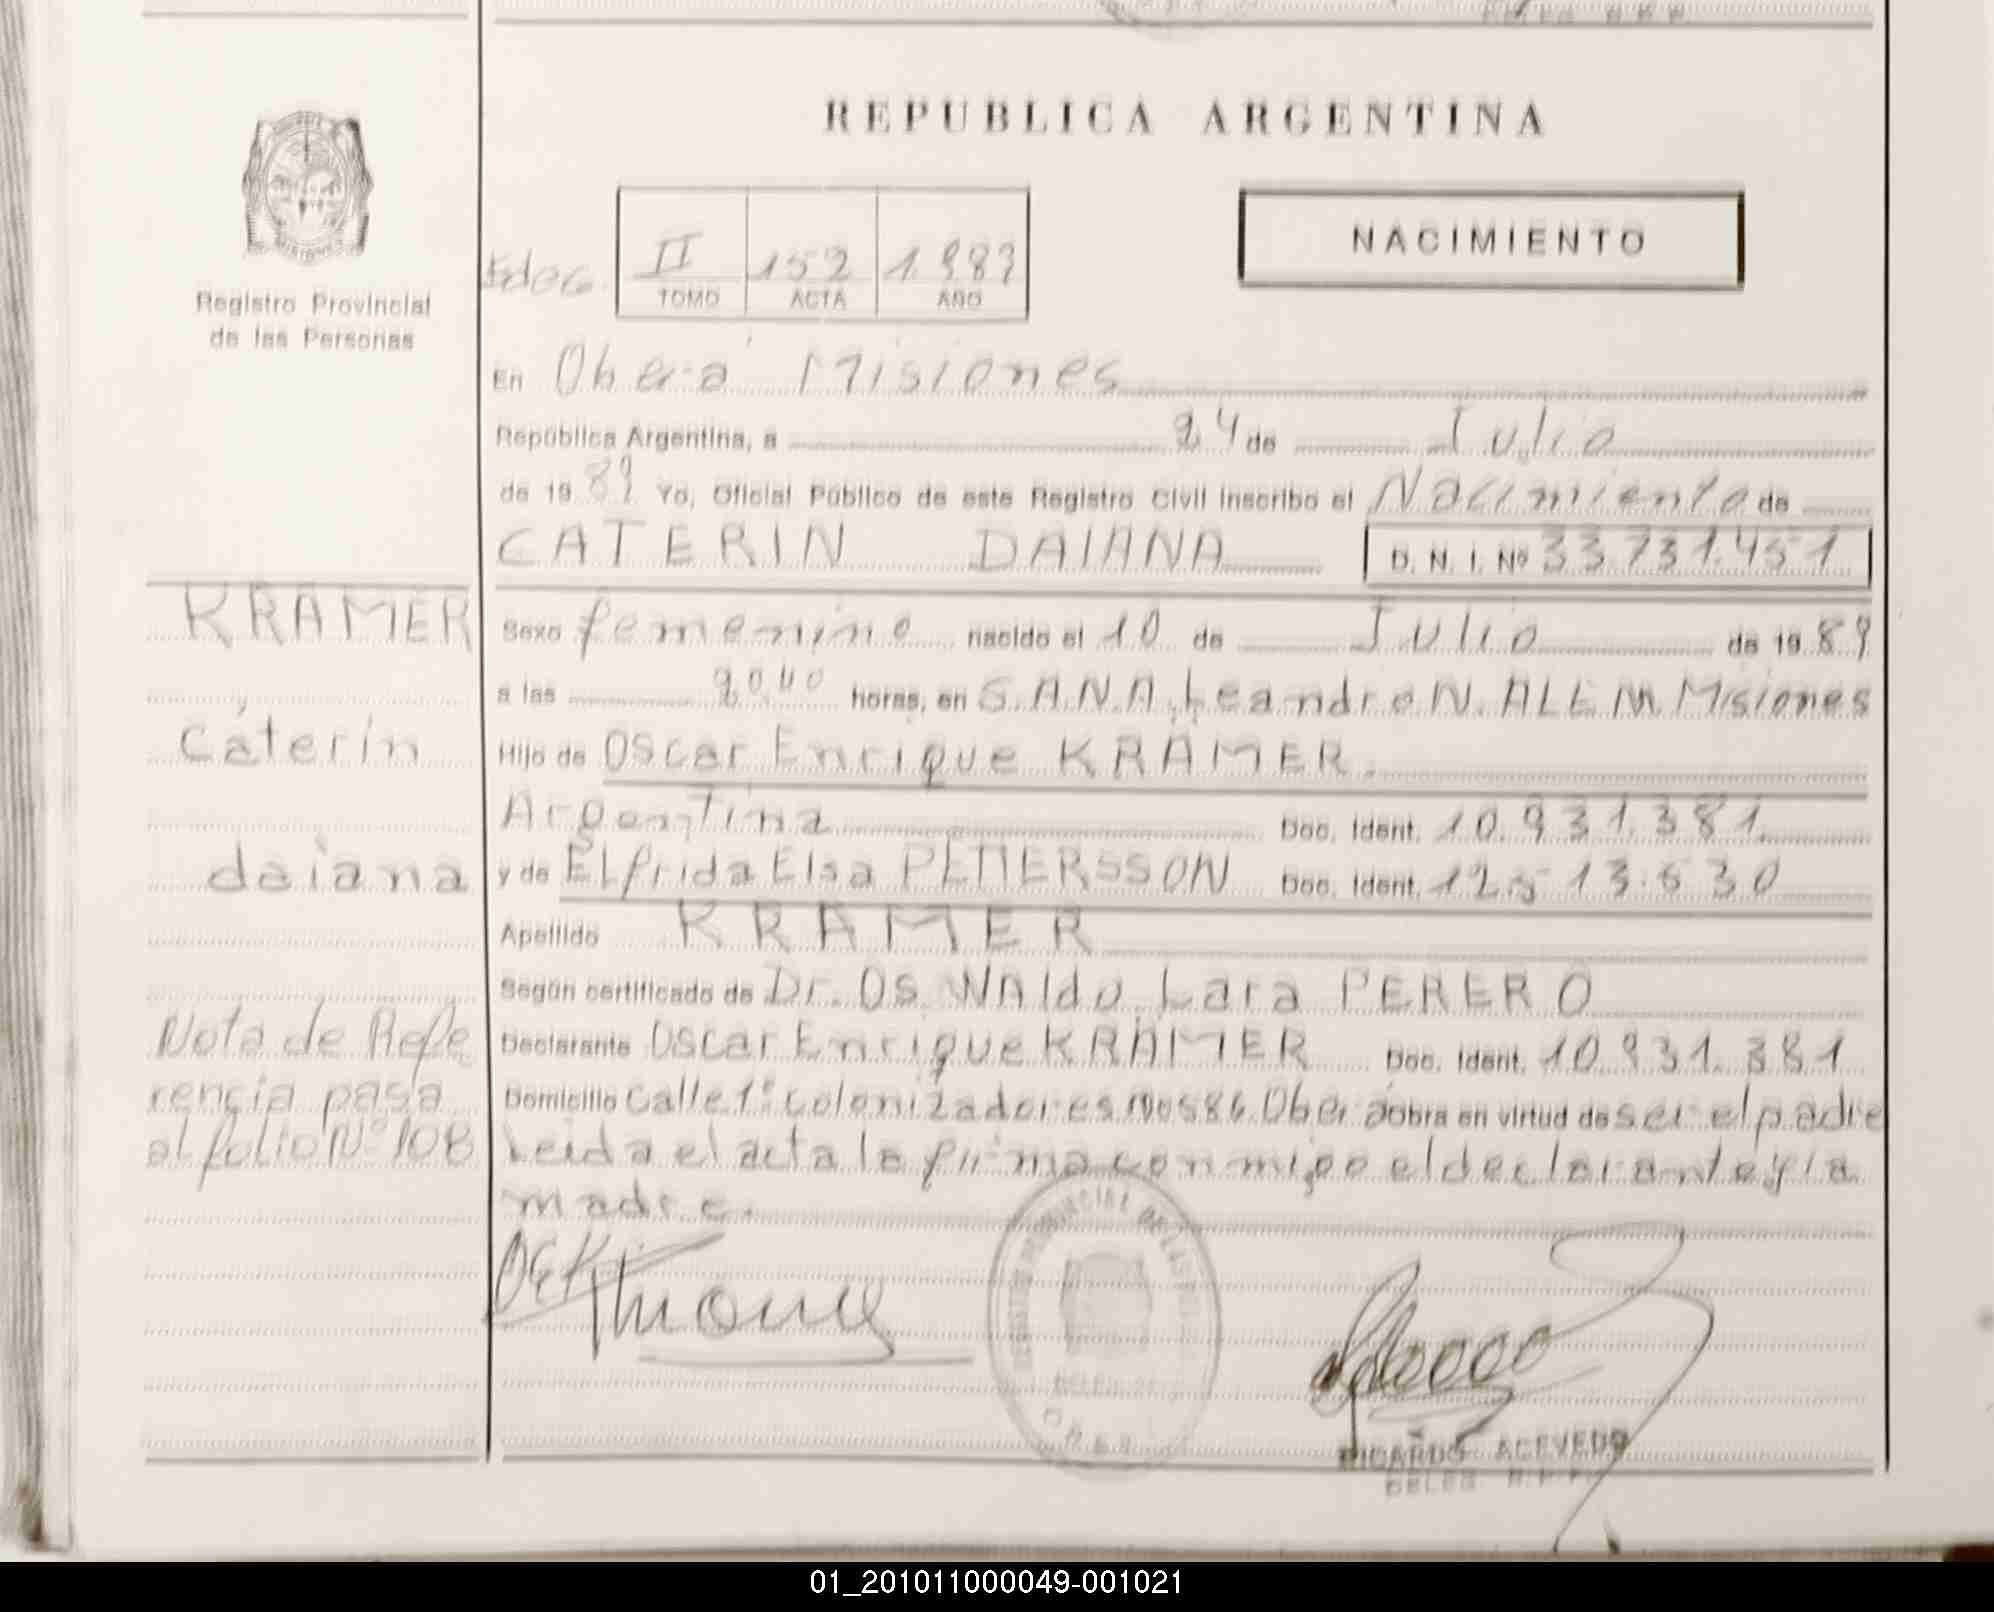 REPUBLICA ARGENTINA
NACIMIENTO
Registro Provincial
de las Personas
II 152 1.989
TOMO ACTA AÑO
En Oberá Misiones
República Argentina, a 24 de Julio
de 19 89 Yo, Oficial Público de este Registro Civil inscribo el Nacimiento de
CATERIN DAIANA D. N. I. Nº 33.731.451
KRAMER
Cáterin
daiana
Nota de Refe
rencia pasa
al folio Nº 108
Sexo femenino nacido el 10 de Julio de 19 89
a las horas, en S.A.N.A. Leandro N. ALEM Misiones
Hijo de Oscar Enrique KRAMER.
Argentina Doc. Ident. 10.931.381.
y de Elfrida Elsa PETTERSSON Doc. Ident. 12.513.630
Apellido KRAMER
Según certificado de Dr. Os WAldo Lara PERERO
Declarante Oscar Enrique KRAMER Doc. Ident. 10.931.381
Domicilio Calle 1º colonizadores Nº 586 Oberá obra en virtud de ser el padre
Leida el acta la firma conmigo el declarante y la
madre.
RICARDO ACEVEDO
DELEG. R.P.P.
01_201011000049-001021